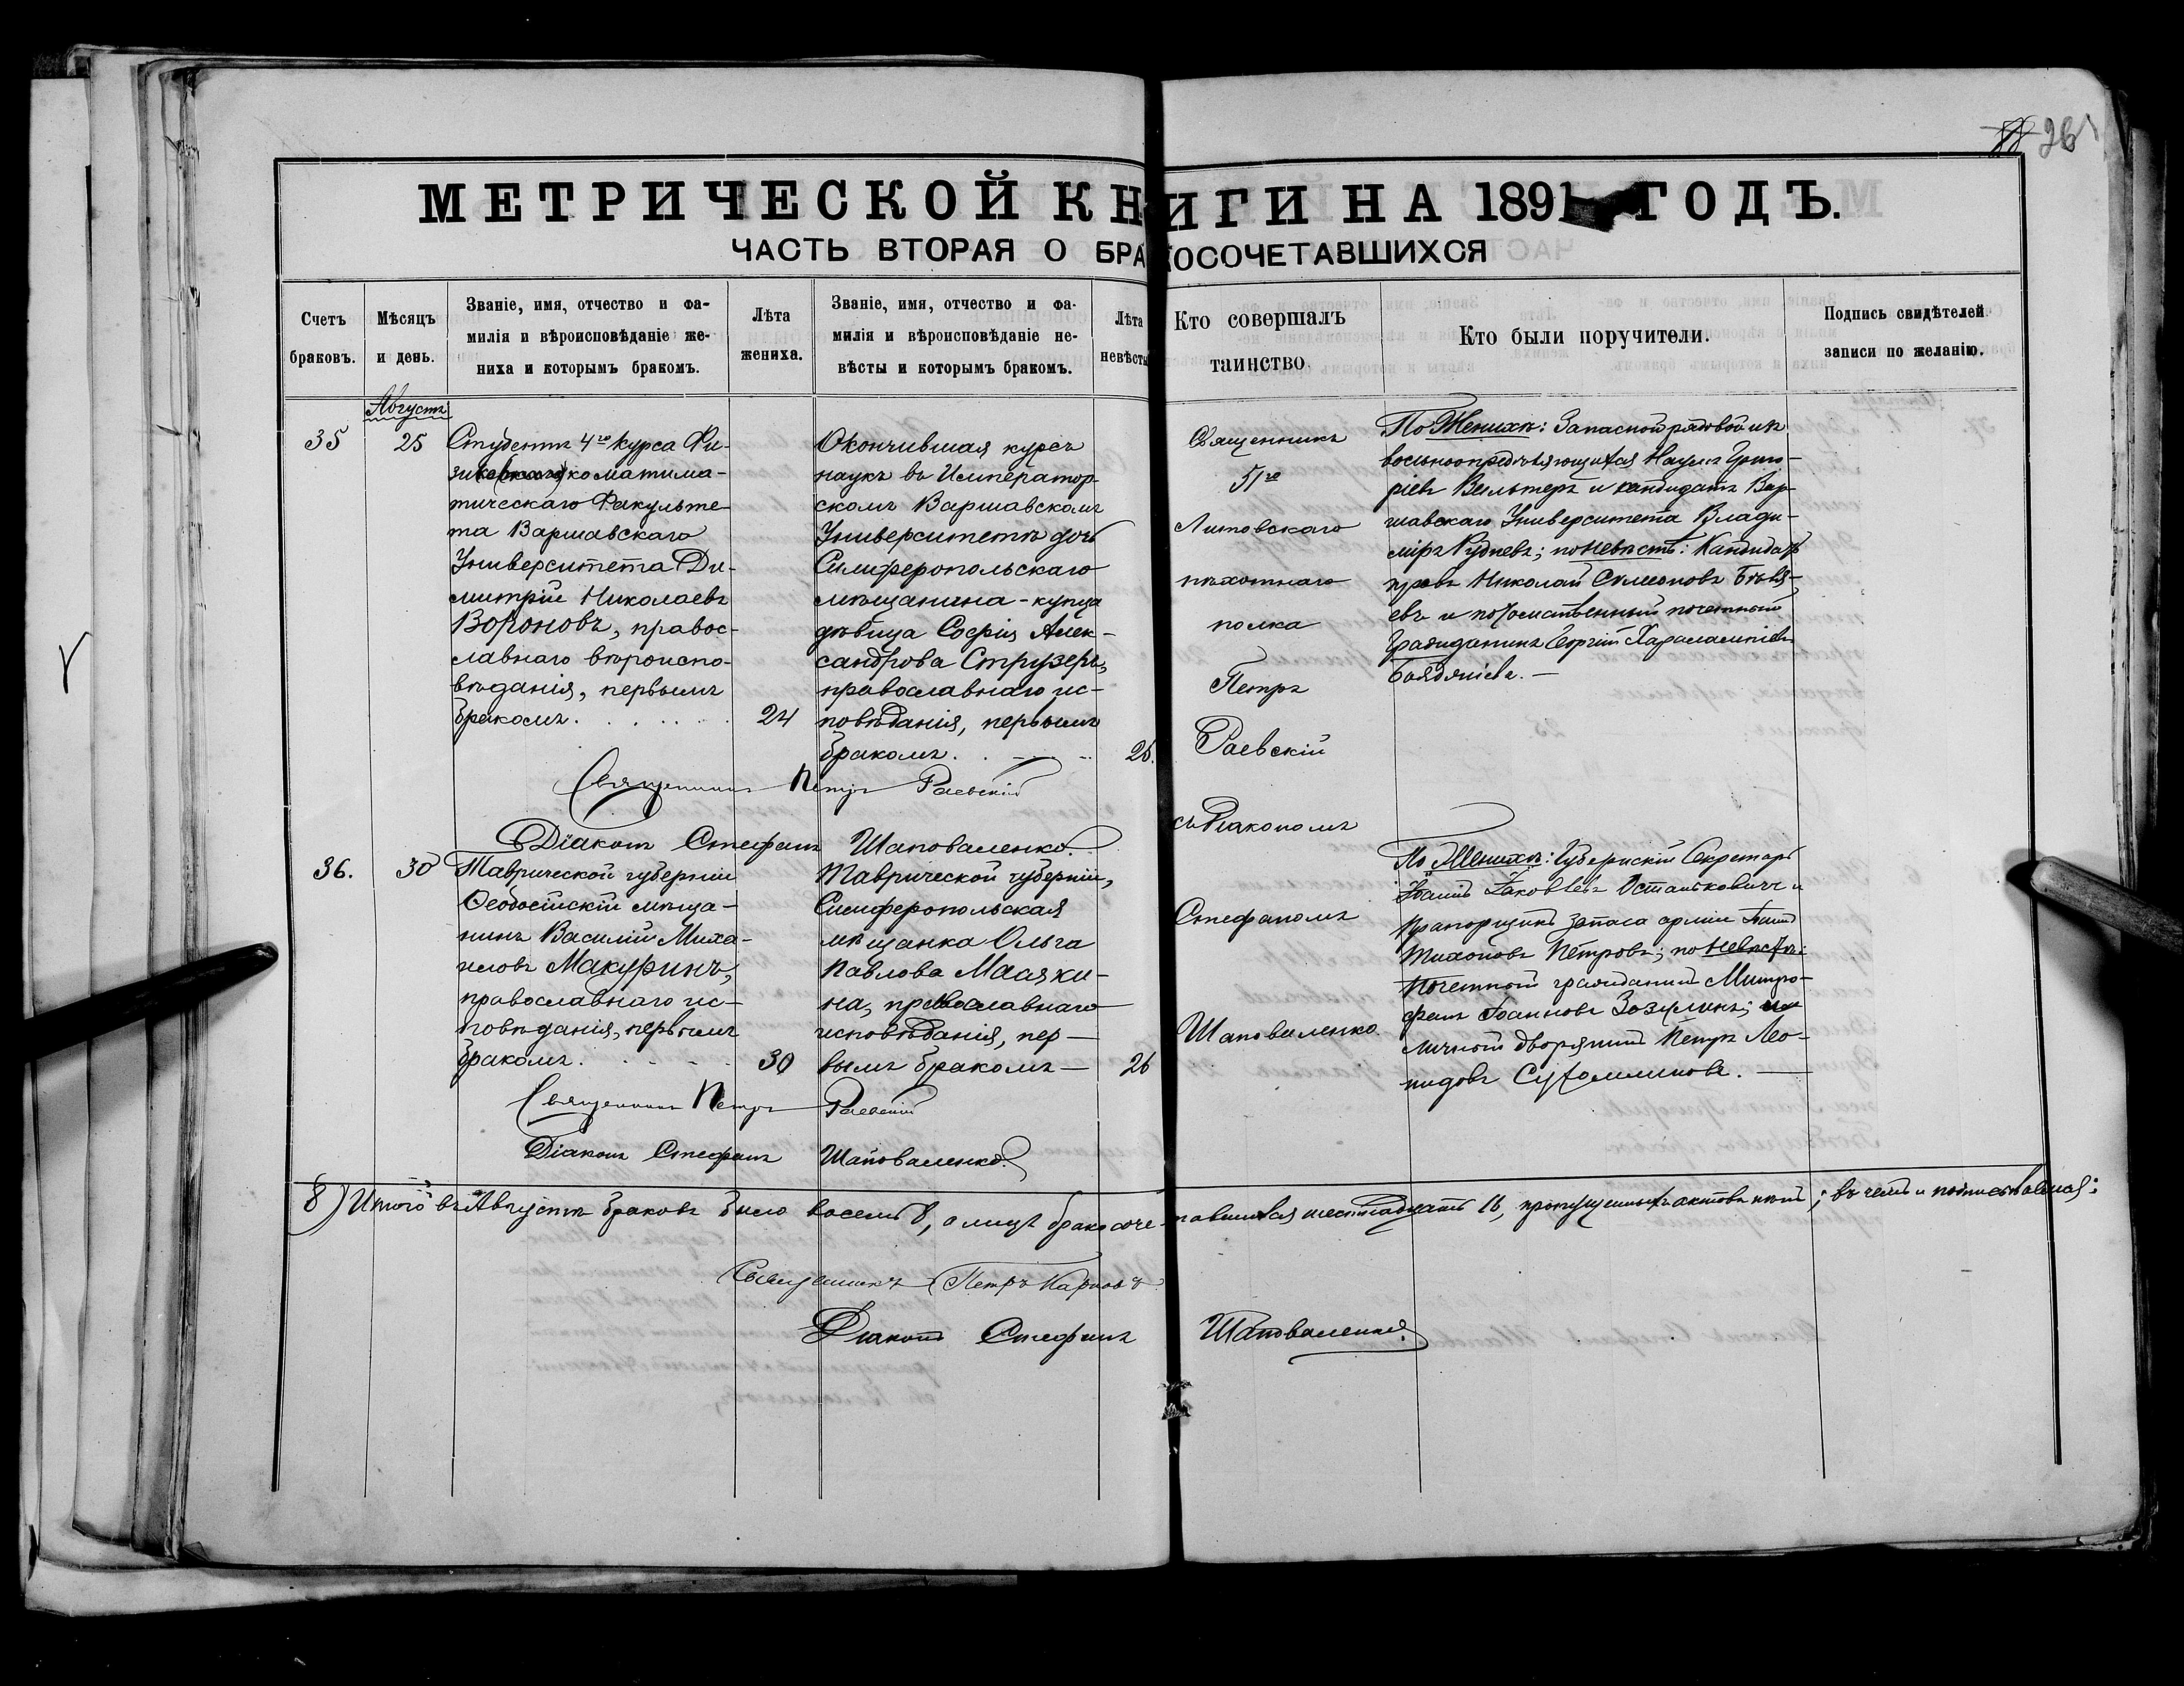 26
МЕТРИЧЕСКОЙ КНИГИ НА 1891 ГОДЪ.
ЧАСТЬ ВТОРАЯ О БРАКОСОЧЕТАВШИХСЯ
Счетъ
браковъ.
Мѣсяцъ
и день.
Званіе, имя, отчество и фа-
милія и вѣроисповѣданіе же-
ниха и которымъ бракомъ.
Лѣта
жениха.
Званіе, имя, отчество и фа-
милія и вѣроисповѣданіе не-
вѣсты и которымъ бракомъ.
Лѣта
невѣсты
Кто совершалъ
таинство
Кто были поручители.
Подпись свидѣтелей
записи по желанію.
Августъ
35
25
Студентъ 4го курса Фи-
зико матима-
тическаго Факульте-
та Варшавскаго
Университета Ди-
митрій Николаевъ
Вороновъ, правос-
славнаго вѣроиспо-
вѣданія, первымъ
бракомъ.
24
Окончившая курсъ
наукъ въ Император-
скомъ Варшавскомъ
Университетѣ дочь
Симферопольскаго
мѣщанина-купца
дѣвица Софія Алек-
сандрова Струзеръ,
православнаго ис-
повѣданія, первымъ
бракомъ.
26.
Священникъ
51го
Литовскаго
пѣхотнаго
полка
Петръ
Раевскій
съ Діакономъ
Стефаномъ
Шаповаленко
По Женихѣ: Запасной рядовой изъ
вольноопредѣляющихся Наумъ Григо-
ріевъ Вельтеръ и кандидатъ Вар-
шавскаго Университета Влади-
міръ Рудневъ; по Невѣстѣ: Кандидатъ
правъ Николай Симеоновъ Бѣля-
евъ и потомственный почетный
Гражданинъ Георгій Харалампіевъ
Священникъ Петръ Раевскій
Діаконъ Стефанъ Шаповаленко.
36.
30
Таврической губерніи
Ѳеодосійскій мѣща-
нинъ Василій Миха-
иловъ Макуринъ,
православнаго ис-
повѣданія, первымъ
бракомъ.
30
Таврической губерніи,
Симферопольская
мѣщанка Ольга
Павлова Маяки-
на, православнаго
исповѣданія, пер-
вымъ бракомъ
26
По Женихѣ: Губернскій Секретарь
Іоаннъ Іаковлевъ Остальковичъ и
Прапорщикъ запаса арміи Іоаннъ
Тихоновъ Петровъ; по Невѣстѣ:
Почетный гражданинъ Митро-
фанъ Іоанновъ Зозулинъ; и
личный дворянинъ Петръ Лео-
нидовъ Сухомлиновъ.
Священникъ Петръ Раевскій
Діаконъ Стефанъ Шаповаленко.
8) Итого въ Августѣ браковъ было восемь 8, а лицъ бракосоче-тавшихся шестнадцать 16, пропущенныхъ актовъ нѣтъ; въ чемъ и подписываемся:
Священникъ Петръ Карповъ
Діаконъ Стефанъ Шаповаленко.